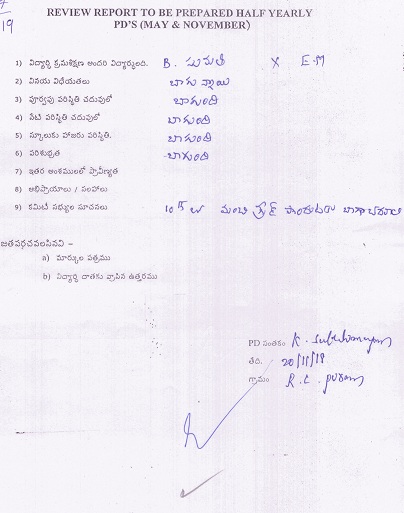 19
REVIEW REPORT TO BE PREPARED HALF YEARLY
PD'S (MAY & NOVEMBER)
1) విద్యార్థి క్రమశిక్షణ అందరి విద్యార్థులది. B. సుమతి X E.M
2) వినయ విధేయతలు బాగు న్నాయి
3) పూర్వపు పరిస్థితి చదువులో బాగుంది
4) నేటి పరిస్థితి చదువులో బాగుంది
5) స్కూలుకు హాజరు పరిస్థితి. బాగుంది
6) పరిశుభ్రత బాగుంది
7) ఇతర అంశములలో ప్రావీణ్యత
8) అభిప్రాయాలు / సలహాలు
9) కమిటీ సభ్యుల సూచనలు 10th లో మంచి గ్రేడ్
జతపర్చవలసినవి -
a) మార్కుల పత్రము
b) విద్యార్థి దాతకు వ్రాసిన ఉత్తరము
PD సంతకం K. Subrhmanyam
తేది. 20/11/19
గ్రామం R.C. puram